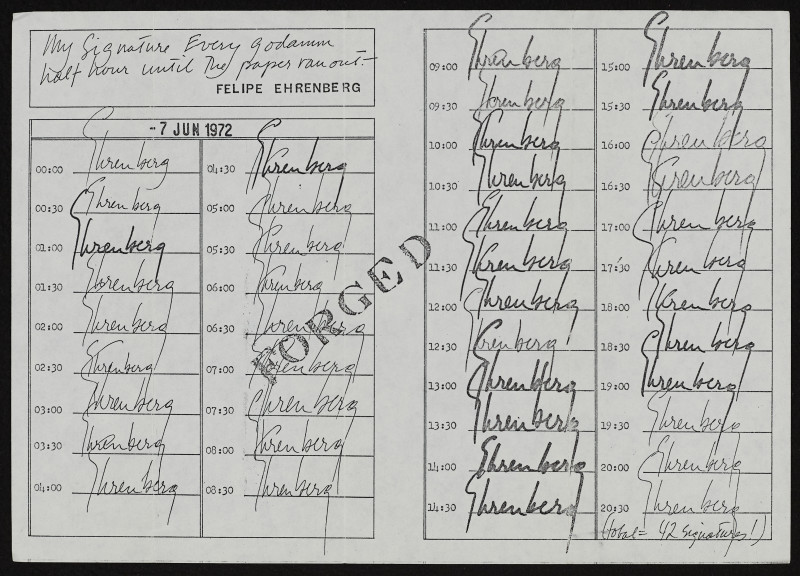 My Signature Every godamm
half hour until the paper ran out.—
FELIPE EHRENBERG
-7 JUN 1972
00:00 Ehrenberg
00:30 Ehrenberg
01:00 Ehrenberg
01:30 Ehrenberg
02:00 Ehrenberg
02:30 Ehrenberg
03:00 Ehrenberg
03:30 Ehrenberg
04:00 Ehrenberg
04:30 Ehrenberg
05:00 Ehrenberg
05:30 Ehrenberg
06:00 Ehrenberg
06:30 Ehrenberg
07:00 Ehrenberg
07:30 Ehrenberg
08:00 Ehrenberg
08:30 Ehrenberg
FORGED
09:00 Ehrenberg
09:30 Ehrenberg
10:00 Ehrenberg
10:30 Ehrenberg
11:00 Ehrenberg
11:30 Ehrenberg
12:00 Ehrenberg
12:30 Ehrenberg
13:00 Ehrenberg
13:30 Ehrenberg
14:00 Ehrenberg
14:30 Ehrenberg
15:00 Ehrenberg
15:30 Ehrenberg
16:00 Ehrenberg
16:30 Ehrenberg
17:00 Ehrenberg
17:30 Ehrenberg
18:00 Ehrenberg
18:30 Ehrenberg
19:00 Ehrenberg
19:30 Ehrenberg
20:00 Ehrenberg
20:30 Ehrenberg
(total = 42 signatures!)